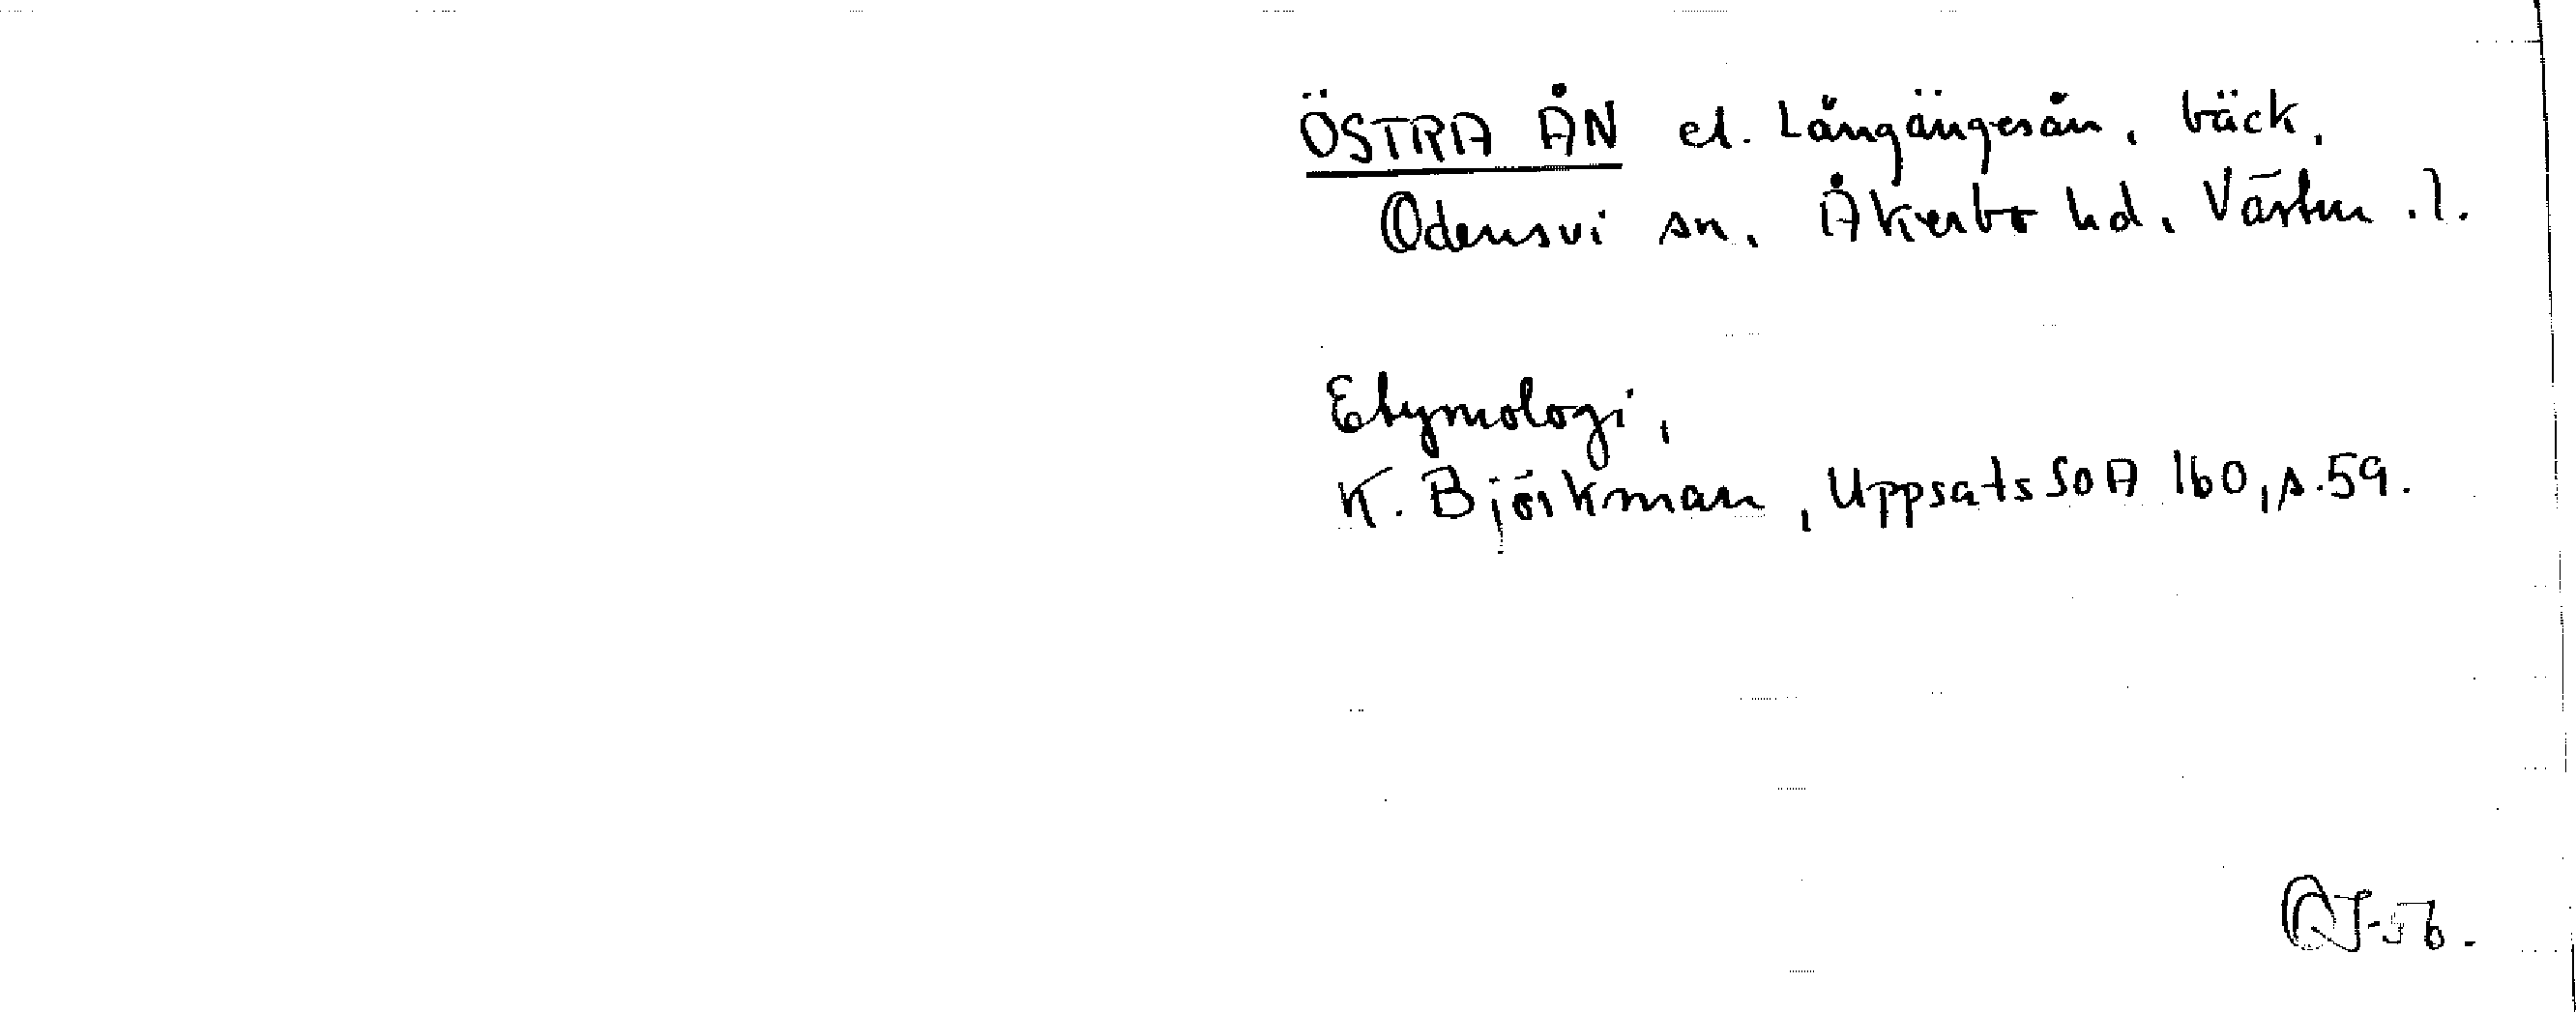 ÖSTRA ÅN el. Långängesån, bäck,
Odensvi sn, Åkerbo hd, Västm.l.
Etymologi,
K. Björkman, Uppsats SOA 160, s.59.
QJ-56.